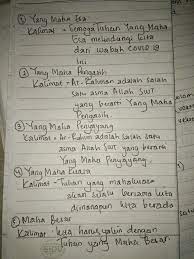 ① Yang Maha Esa
Kalimat = Semoga Tuhan Yang Maha
Esa melindungi kita
dari wabah covid 19
ini
② Yang Maha Pengasih
Kalimat = Ar-Rahman adalah salah
satu asma Allah SWT
yang berarti Yang Maha
Pengasih.
③ Yang Maha Penyayang
Kalimat = Ar-Rahim adalah salah satu
asma Allah SWT yang berarti
Yang Maha Penyayang.
④ Yang Maha Kuasa
Kalimat = Tuhan yang mahakuasa
akan selalu bersama kita
dimanapun kita berada
⑤ Maha Besar
Kalimat = kita harus yakin dengan
Tuhan yang Maha Besar.